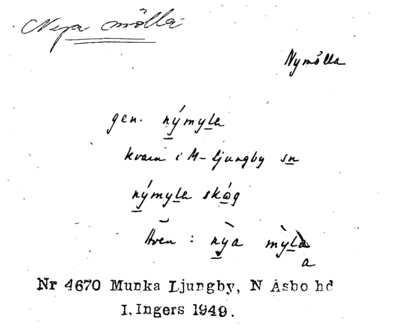 Nya mölla
Nymölla
gen. nýmyla
kvarn i M-Ljungby sn
nýmyla skóg
Även: nỳa mỳla
a
Nr 4670 Munka Ljungby, N Åsbo hd
I. Ingers 1949.